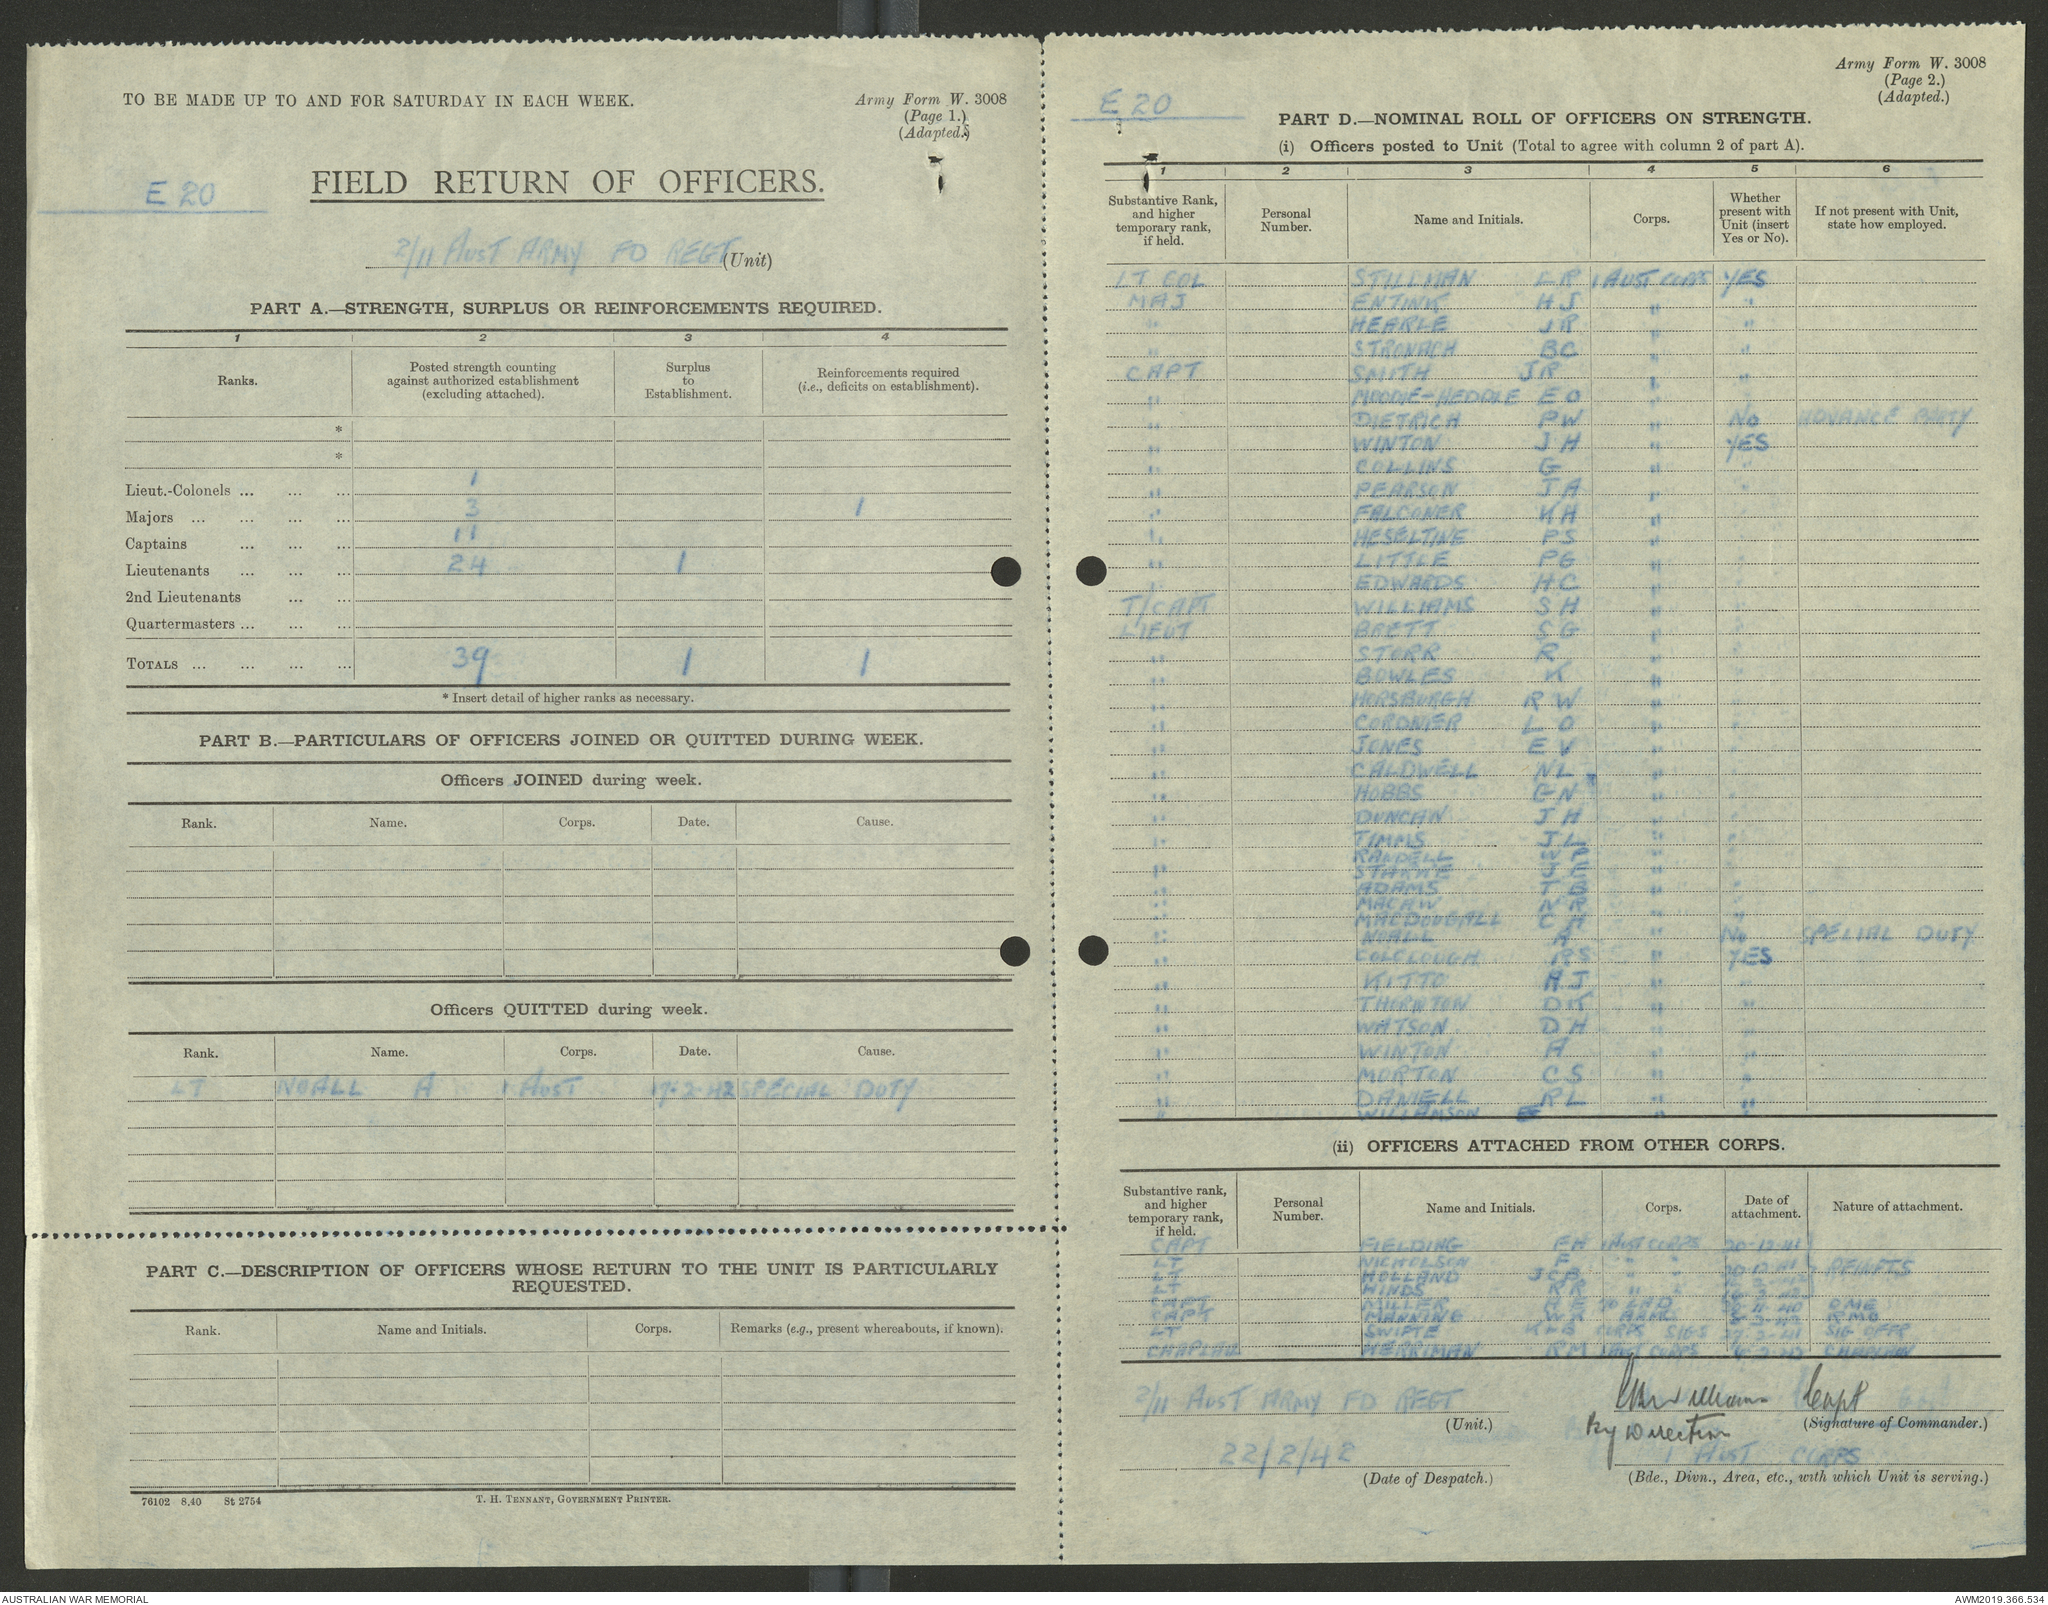 TO BE MADE UP TO AND FOR SATURDAY IN EACH WEEK.
Army Form W. 3008
(Page 1.)
(Adapted.)
E 20
FIELD RETURN OF OFFICERS.
2/11 AUST ARMY FD REGT (Unit)
PART A.—STRENGTH, SURPLUS OR REINFORCEMENTS REQUIRED.
1 2 3 4
Ranks. Posted strength counting against authorized establishment (excluding attached). Surplus to Establishment. Reinforcements required (i.e., deficits on establishment).
*
*
Lieut.-Colonels ... ... ... 1
Majors ... ... ... ... 3 1
Captains ... ... ... 11
Lieutenants ... ... ... 24 1
2nd Lieutenants ... ...
Quartermasters ... ... ...
TOTALS ... ... ... ... 39 1 1
* Insert detail of higher ranks as necessary.
PART B.—PARTICULARS OF OFFICERS JOINED OR QUITTED DURING WEEK.
Officers JOINED during week.
Rank. Name. Corps. Date. Cause.
Officers QUITTED during week.
Rank. Name. Corps. Date. Cause.
LT NOALL A 1 AUST 17-2-42 SPECIAL DUTY
PART C.—DESCRIPTION OF OFFICERS WHOSE RETURN TO THE UNIT IS PARTICULARLY
REQUESTED.
Rank. Name and Initials. Corps. Remarks (e.g., present whereabouts, if known).
76102 8.40 St 2754 T. H. TENNANT, GOVERNMENT PRINTER.
Army Form W. 3008
(Page 2.)
(Adapted.)
E 20
PART D.—NOMINAL ROLL OF OFFICERS ON STRENGTH.
(i) Officers posted to Unit (Total to agree with column 2 of part A).
1 2 3 4 5 6
Substantive Rank, and higher temporary rank, if held. Personal Number. Name and Initials. Corps. Whether present with Unit (insert Yes or No). If not present with Unit, state how employed.
LT COL STILLMAN LR 1 AUST CORPS YES
MAJ ENTINK HJ " "
" HEARLE JR " "
" STRONACH BC " "
CAPT SMITH JR " "
" MOODIE-HEDDLE EO " "
" DIETRICH PW " NO ADVANCE PARTY
" WINTON JH " YES
" COLLINS G " "
" PEARSON JA " "
" FALCONER KH " "
" HESELTINE PS " "
" LITTLE PG " "
" EDWARDS HC " "
T/CAPT WILLIAMS SH " "
LIEUT BRETT SG " "
" STORR R " "
" BOWLES K " "
" HORSBURGH RW " "
" CORDNER LO " "
" JONES EV " "
" CALDWELL NL " "
" HOBBS GN " "
" DUNCAN JH " "
" TIMMS JL " "
" RANDELL WP " "
" STARKE JE " "
" ADAMS TB " "
" MACAW NR " "
" MACDOUGALL CA " "
" NOALL A " NO SPECIAL DUTY
" COLCLOUGH RS " YES
" KITTO AJ " "
" THORNTON DK " "
" WATSON DH " "
" WINTON A " "
" MORTON CS " "
" DANIELL RL " "
" WILLIAMSON EF " "
(ii) OFFICERS ATTACHED FROM OTHER CORPS.
Substantive rank, and higher temporary rank, if held. Personal Number. Name and Initials. Corps. Date of attachment. Nature of attachment.
CAPT FIELDING FH 1 AUST CORPS 20-12-41
LT NICHOLSON F " " REINFTS
LT HOLLAND JCB " "
LT HINDS RR " "
CAPT MILLER LAD OME
CAPT MANNING AAMC RMO
LT SWIFTE CORPS SIGS SIG OFFR
CHAPLAIN MERRIMAN RM 1 AUST CORPS CHAPLAIN
2/11 AUST ARMY FD REGT
(Unit.)
Williams Capt
By Direction
(Signature of Commander.)
22/2/42
(Date of Despatch.)
1 AUST CORPS
(Bde., Divn., Area, etc., with which Unit is serving.)
AUSTRALIAN WAR MEMORIAL
AWM2019.366.534